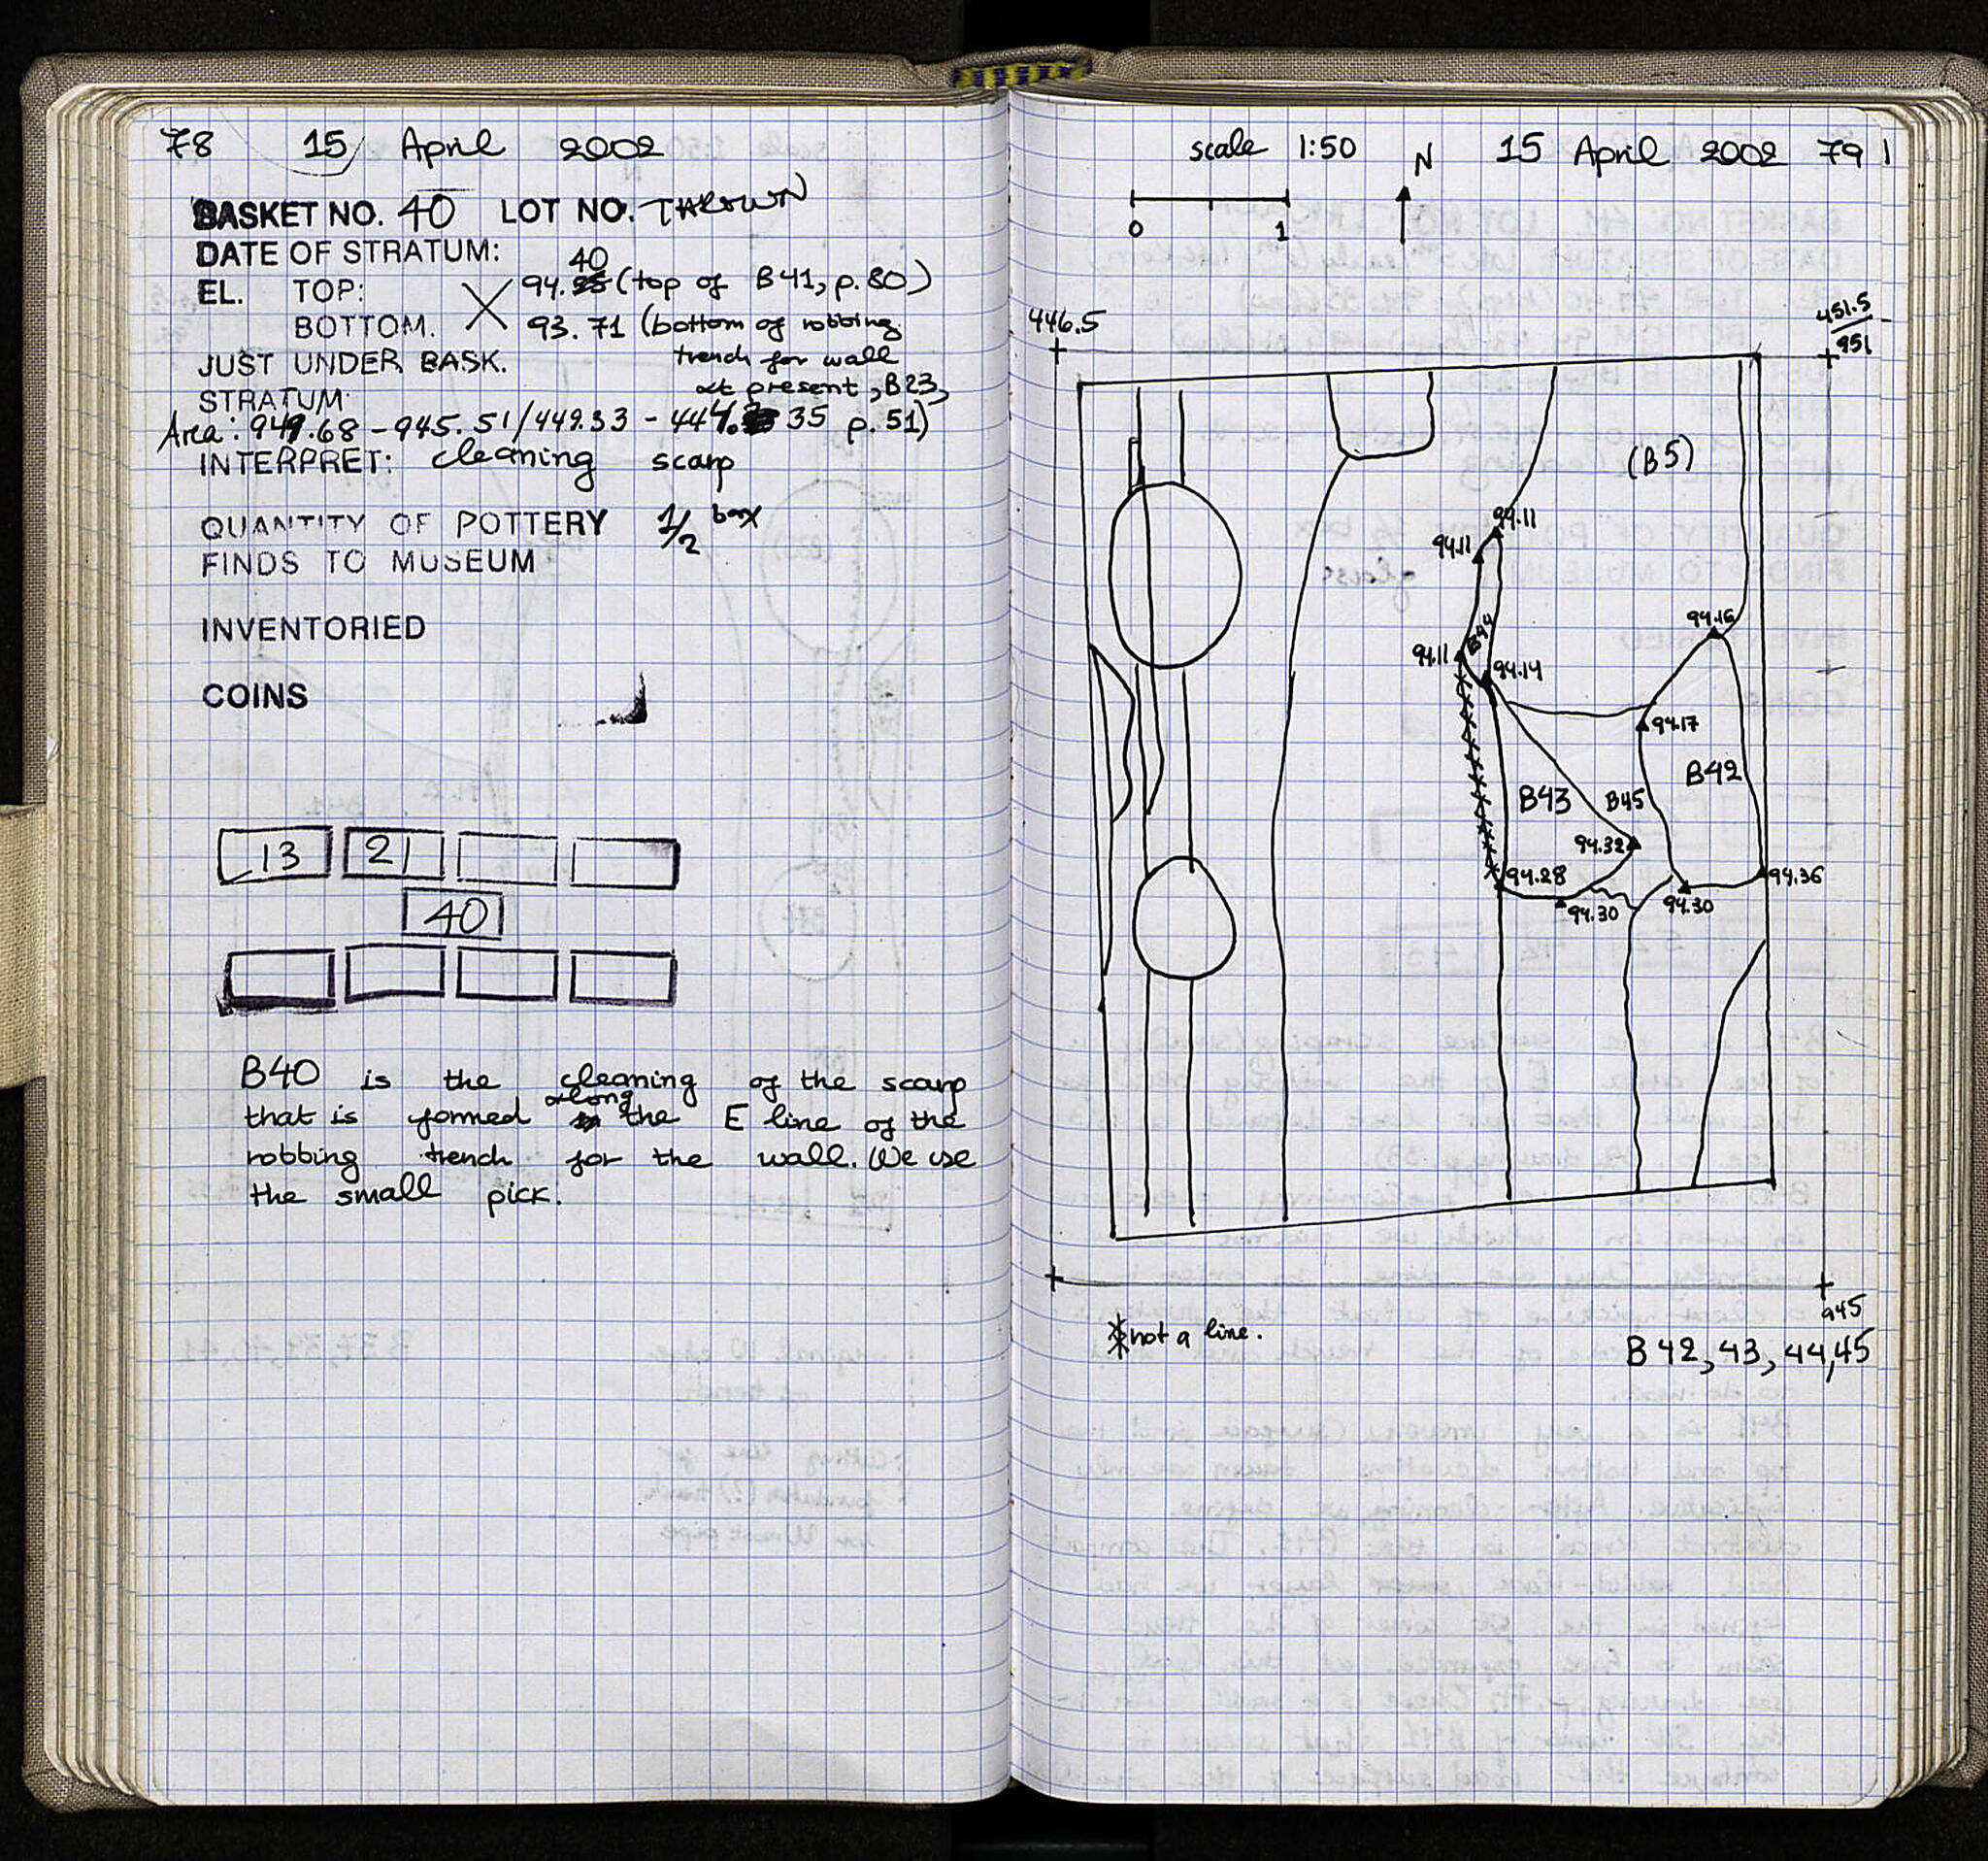 78 15 April 2002
BASKET NO. 40 LOT NO. THROWN
DATE OF STRATUM:
40
EL. TOP: 94. (top of B41, p.80)
BOTTOM. 93.71 (bottom of robbing
JUST UNDER BASK. trench for wall
STRATUM at present, B23,
Area: 949.68 - 945.51/449.33 - 447. 35 p.51)
INTERPRET: cleaning scarp
QUANTITY OF POTTERY 1/2 box
FINDS TO MUSEUM
INVENTORIED
COINS
13 21
40
B40 is the cleaning of the scarp
that is formed along the E line of the
robbing trench for the wall. We use
the small pick.
scale 1:50 N 15 April 2002 79
0 1
446.5 451.5
951
(B5)
94.11
94.11
94.16
B44
94.11
94.14
94.17
B42
B43 B45
94.32
94.28 94.36
94.30 94.30
945
not a line.
B 42, 43, 44, 45